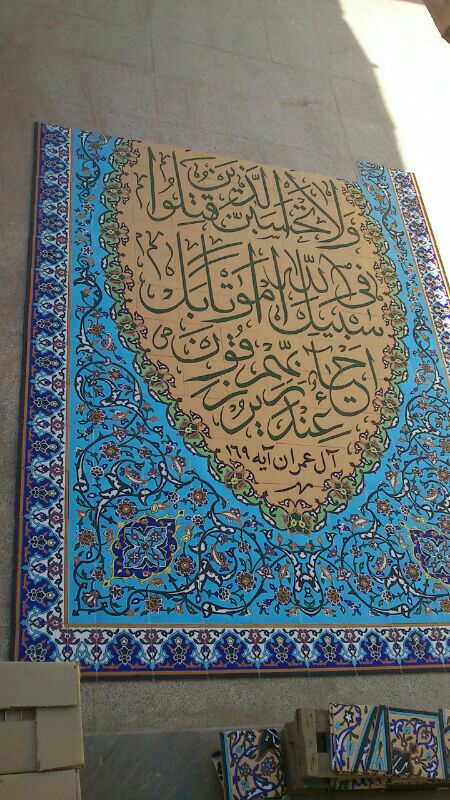 ولا تحسبن الذین قتلوا
فی سبیل الله امواتا بل
احیاء عند ربهم یرزقون
آل عمران آیه ۱۶۹